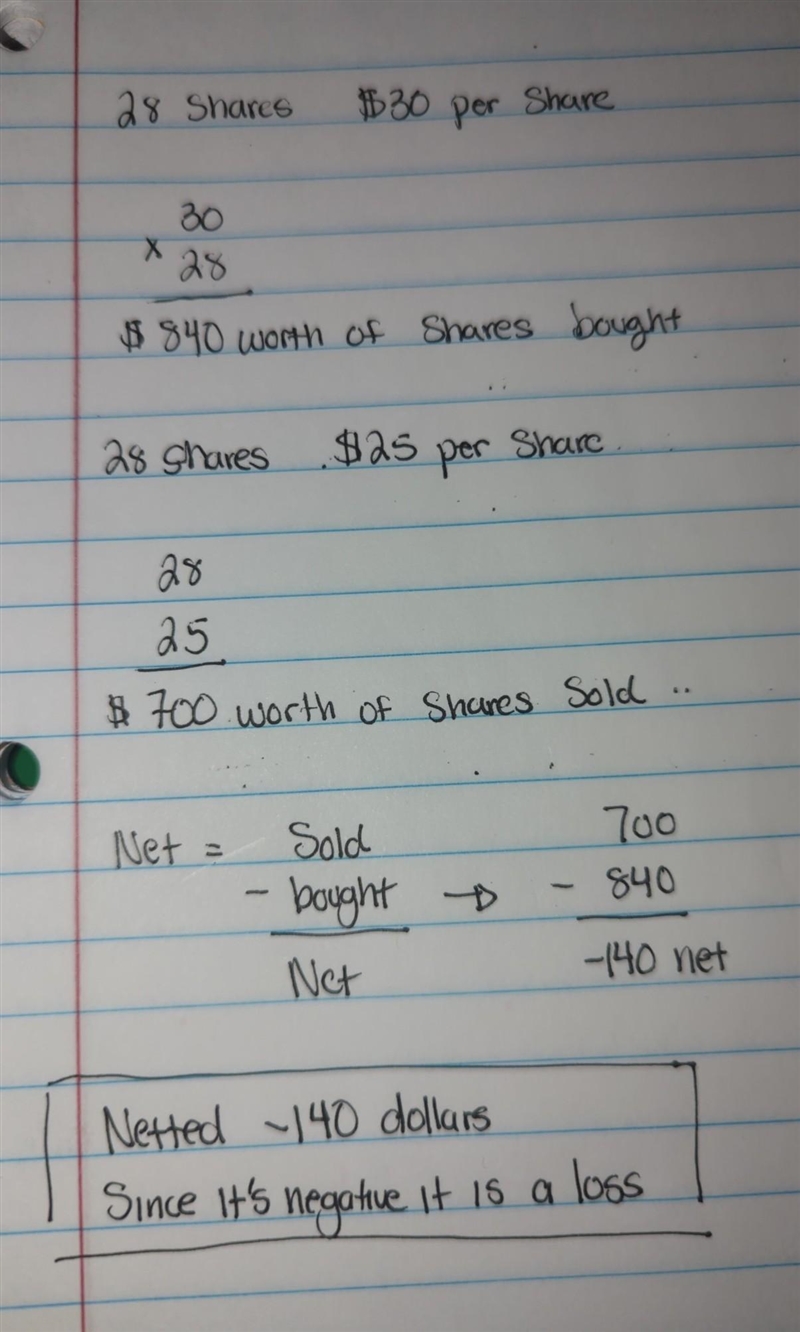 28 Shares $30 per Share
30
x 28
$ 840 worth of Shares bought
28 Shares . $25 per Share.
28
25
$ 700 worth of Shares Sold ..
Net = Sold 700
- bought → - 840
Net -140 net
Netted ~140 dollars
Since it's negative it is a loss